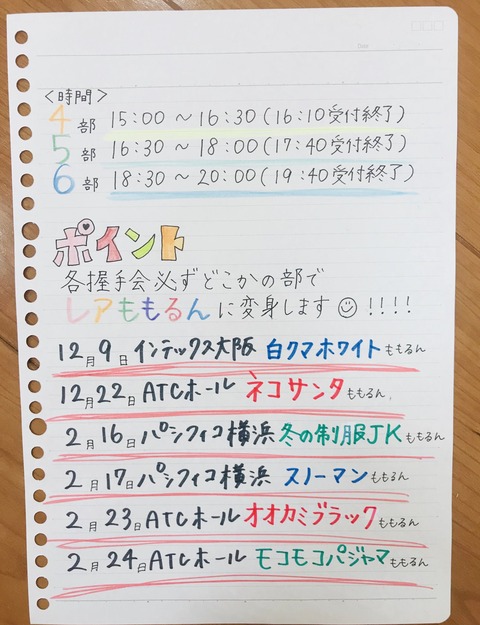 <時間>
4部 15:00 〜 16:30 (16:10受付終了)
5部 16:30 〜 18:00 (17:40受付終了)
6部 18:30 〜 20:00 (19:40受付終了)
ポイント
各握手会必ずどこかの部で
レアももるんに変身します☺!!!!
12月9日インテックス大阪 白クマホワイトももるん
12月22日ATCホール ネコサンタももるん
2月16日パシフィコ横浜 冬の制服JKももるん
2月17日パシフィコ横浜 スノーマンももるん
2月23日ATCホール オオカミブラックももるん
2月24日ATCホール モコモコパジャマももるん